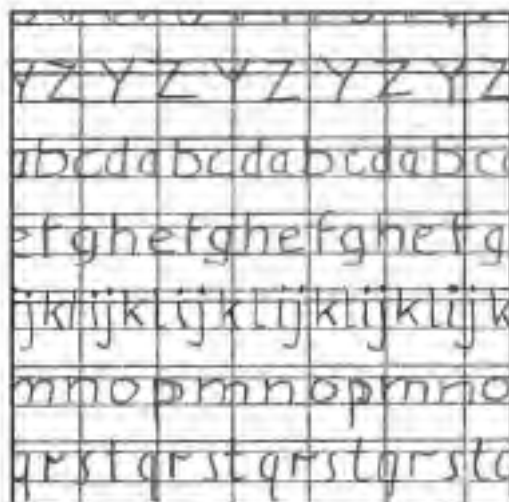 YZYZYZYZYZ
abcdabcdabcdabcd
efghefghefghefg
ijklijklijklijklijk
mnopmnopmno
qrstqrstqrstqrst